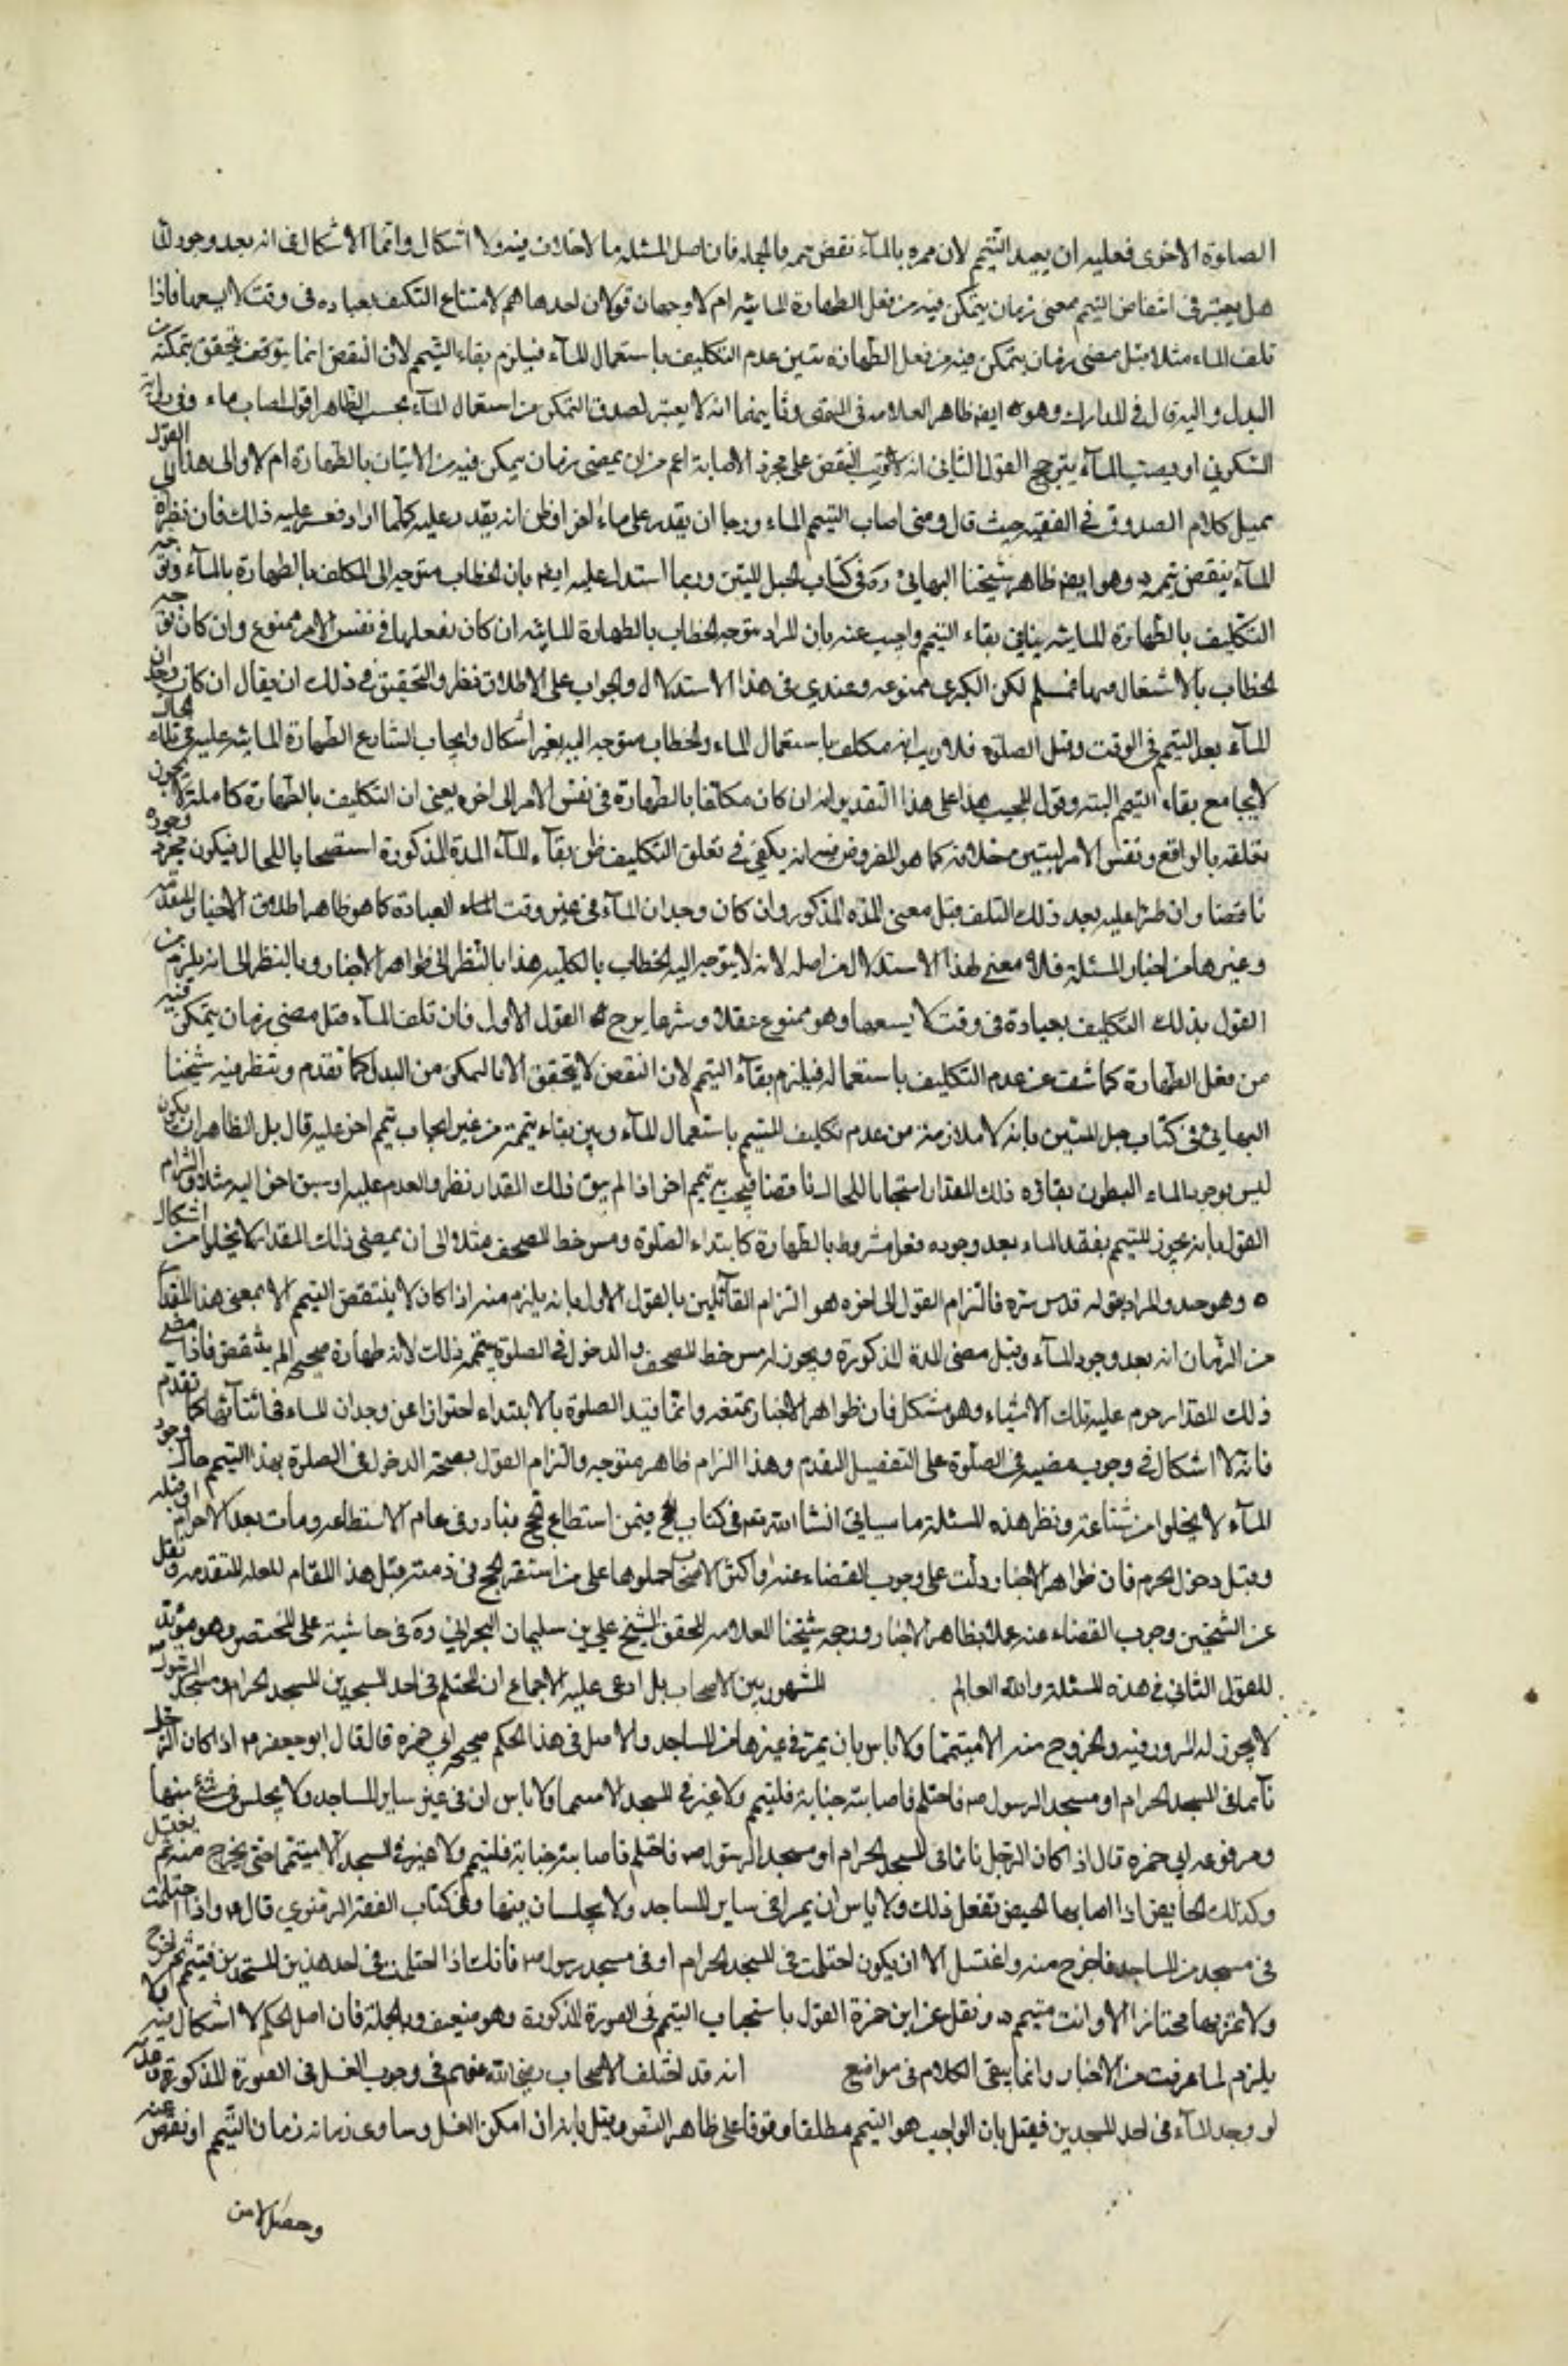 الصلوة الاخرى فعليه ان يعيد التيمم لان ممره بالمآء نقض تيممه وبالجملة فان اصل المسئله مما لا خلاف فيه ولا اشكال وانما الاشكال في انه بعد وجود الماء
هل يعتبر في انتقاض التيمم مضى زمان يتمكن فيه من فعل الطهارة المائيه ام لا وجهان قولان احدهما نعم لامتناع التكليف بعباده في وقت لا يسعها فاذا
تلف الماء مثلا قبل مضى زمان يتمكن فيه من فعل الطهاره تبين عدم التكليف باستعمال المآء فيلزم بقاء التيمم لان النقض انما يتوقف تحقق تمكنه من
البدل واليه مال في المدارك وهو ايض ظاهر العلامه في المنتهى وثانيهما انه لا يعتبر لصدق التمكن من استعمال المآء بحسب الظاهر اقول اصاب ماء وفي رواية
السكوني او يصيب المآء يترجح القول الثاني انه لا ترتيب النقض على مجرد الاصابة اعم من ان يمضى زمان يمكن فيه من الاتيان بالطهارة ام لا والى هذا القول
يميل كلام الصدوق في الفقيه حيث قال ومتى اصاب التيمم الماء ورجا ان يقدر على ماء اخر او ظن انه يقدر عليه كلما اراد فعسر عليه ذلك فان نظره الى
المآء ينقض تيممه وهو ايض ظاهر شيخنا البهائي ره في كتاب الحبل المتين وربما استدل عليه ايض بان الخطاب متوجه الى المكلف بالطهارة بالمآء وتوجه
التكليف بالطهارة المائيه ينافي بقاء التيمم واجيب عنه بان المراد بتوجه الخطاب بالطهارة المائيه ان كان بفعلها في نفس الامر فممنوع وان كان توجه
الخطاب بالاشتغال بها فمسلم لكن الكبرى ممنوعه وعندي في هذا الاستدلال والجواب على الاطلاق نظر والتحقيق في ذلك ان يقال ان كان وجدان
المآء بعد التيمم في الوقت وقبل الصلوة فلا ريب انه مكلف باستعمال الماء والخطاب متوجه اليه بغير اشكال وايجاب الشارع الطهارة المائيه عليه في تلك الحال
لا يجامع بقاء التيمم البته وقول المجيب هذا على هذا التقدير انه ان كان مكلفا بالطهارة في نفس الامر الى اخره يعنى ان التكليف بالطهارة كاملة لا يجوز
تعلقه بالواقع ونفس الامر ليتبين خلافه كما هو المفروض فيه انه يكفي في تعلق التكليف ظن بقآء المآء المدة المذكورة استصحابا للحال فيكون مجرد وجوده
ناقضا وان طرا عليه بعد ذلك التلف قبل مضى المده المذكور وان كان وجدان المآء في غير وقت العبادة كما هو ظاهر اطلاق الاخبار المتقدمه
وغيرها من اخبار المسئلة فلا معنى لهذا الاستدلال من اصله لانه لا يتوجه اليه الخطاب بالكليه هذا بالنظر الى ظواهر الاخبار وبالنظر الى انه يلزم من
القول بذلك التكليف بعبادة في وقت لا يسعها وهو ممنوع عقلا وشرعا يرجح القول الاول فان تلف المآء قبل مضى زمان يتمكن فيه
من فعل الطهارة كاشف عن عدم التكليف باستعماله فيلزم بقآء التيمم لان النقض لا يتحقق الا بالتمكن من البدل كما تقدم وتنظر فيه شيخنا
البهائي في كتاب حبل المتين بانه لا ملازمة من عدم تكليف المتيمم باستعمال المآء وبين بقاء تيممه من غير ايجاب تيمم اخر عليه قال بل الظاهر ان يكون
ليس بوجود الماء المظنون بقاؤه ذلك المقدار استصحابا للحال ناقضا فيجب تيمم اخر اذا لم يبق ذلك المقدار نظر والعدم عليه او سبق اخر اليه مثلا والتزام
القول بانه يجوز للمتيمم بفقد الماء بعد وجوده فعل مشروط بالطهارة كابتداء الصلوة ومس خط المصحف مثلا الى ان يمضى ذلك المقدار لا يخلو من اشكال
ه وهو جيد والمراد بقوله قدس سره فالتزام القول الى اخره هو التزام القآئلين بالقول الاول بانه يلزم منه اذا كان لا ينتقض التيمم الا بمضى هذا المقدار
من الزمان انه بعد وجود المآء وقبل مضى المدة المذكورة ويجوز له مس خط المصحف والدخول في الصلوة بتيممه ذلك لانه طهارة صحيحه لم ينتقض فاذا مضى
ذلك المقدار حرم عليه تلك الاشياء وهو مشكل فان ظواهر الاخبار تمنعه وانما قيد الصلوة بالابتداء احترازا عن وجدان الماء في اثنآئها كما تقدم
فانه لا اشكال في وجوب مضيه في الصلوة على التفضيل المتقدم وهذا الزام ظاهر متوجه والتزام القول بصحة الدخول في الصلوة بهذا التيمم حال وجود
المآء لا يخلوا من شناعة ونظر هذه المسئلة ما سياتي انشا الله تعه في كتاب الحج فيمن استطاع الحج فبادر في عام الاستطاعه ومات بعد الاحرام او قبله
وقبل دخول الحرم فان ظواهر الاخبار دلت على وجوب القضاء عنه واكثر الاصحاب حملوها على من استقر الحج في ذمته قبل هذا المقام للعله المتقدمه ونقل
عن الشيخين وجوب القضاء عنه عملا بظاهر الاخبار ورجحه شيخنا العلامه المحقق الشيخ علي بن سليمان البحراني ره في حاشية على المختصر وهو مؤيد
للقول الثاني في هذه المسئلة والله العالم المشهور بين الاصحاب بل ادعى عليه الاجماع ان المحتلم في احد المسجدين المسجد الحرام ومسجد الرسول
لا يجوز له المرور فيه والخروج منه الا متيمما ولا باس بان يمر في غيرها من المساجد والاصل في هذا الحكم صحيحه ابي حمزه قال قال ابو جعفر ع اذا كان الرجل
نآئما في المسجد الحرام او مسجد الرسول ص فاحتلم فاصابته جنابة فليتيمم ولا يمر في المسجد الا متيمما ولا باس ان في غير ساير المساجد ولا يجلس في شئ منها
ومرفوعه ابي حمزه قال اذا كان الرجل نائما في المسجد الحرام او مسجد الرسول ص فاحتلم فاصابته جنابة فليتيمم ولا يمر في المسجد الا متيمما حتى يخرج منه ثم يغتسل
وكذلك الحايض اذا اصابها الحيض تفعل ذلك ولا باس ان يمرا في ساير المساجد ولا يجلسان فيها وفي كتاب الفقه الرضوي قال ع واذا احتلمت
في مسجد من المساجد فاخرج منه واغتسل الا ان يكون احتلمت في المسجد الحرام او في مسجد رسول ص فانك اذا احتلمت في احد هذين المسجدين فتيمم ثم اخرج
ولا تمر بهما مجتازا الا وانت متيمم ه ونقل عن ابن حمزة القول باستحباب التيمم في الصورة المذكورة وهو ضعيف وبالجملة فان اصل الحكم لا اشكال فيه ولا
يلزم لما عرفت من الاخبار وانما يبقى الكلام في مواضع انه قد اختلف الاصحاب رضي الله عنهم في وجوب الغسل في الصورة المذكورة
لو وجد المآء في احد المسجدين فقيل بان الواجب هو التيمم مطلقا وقوفا على ظاهر النص وقيل بانه ان امكن الغسل وساوى زمانه زمان التيمم او نقص عنه
وحصل الامن